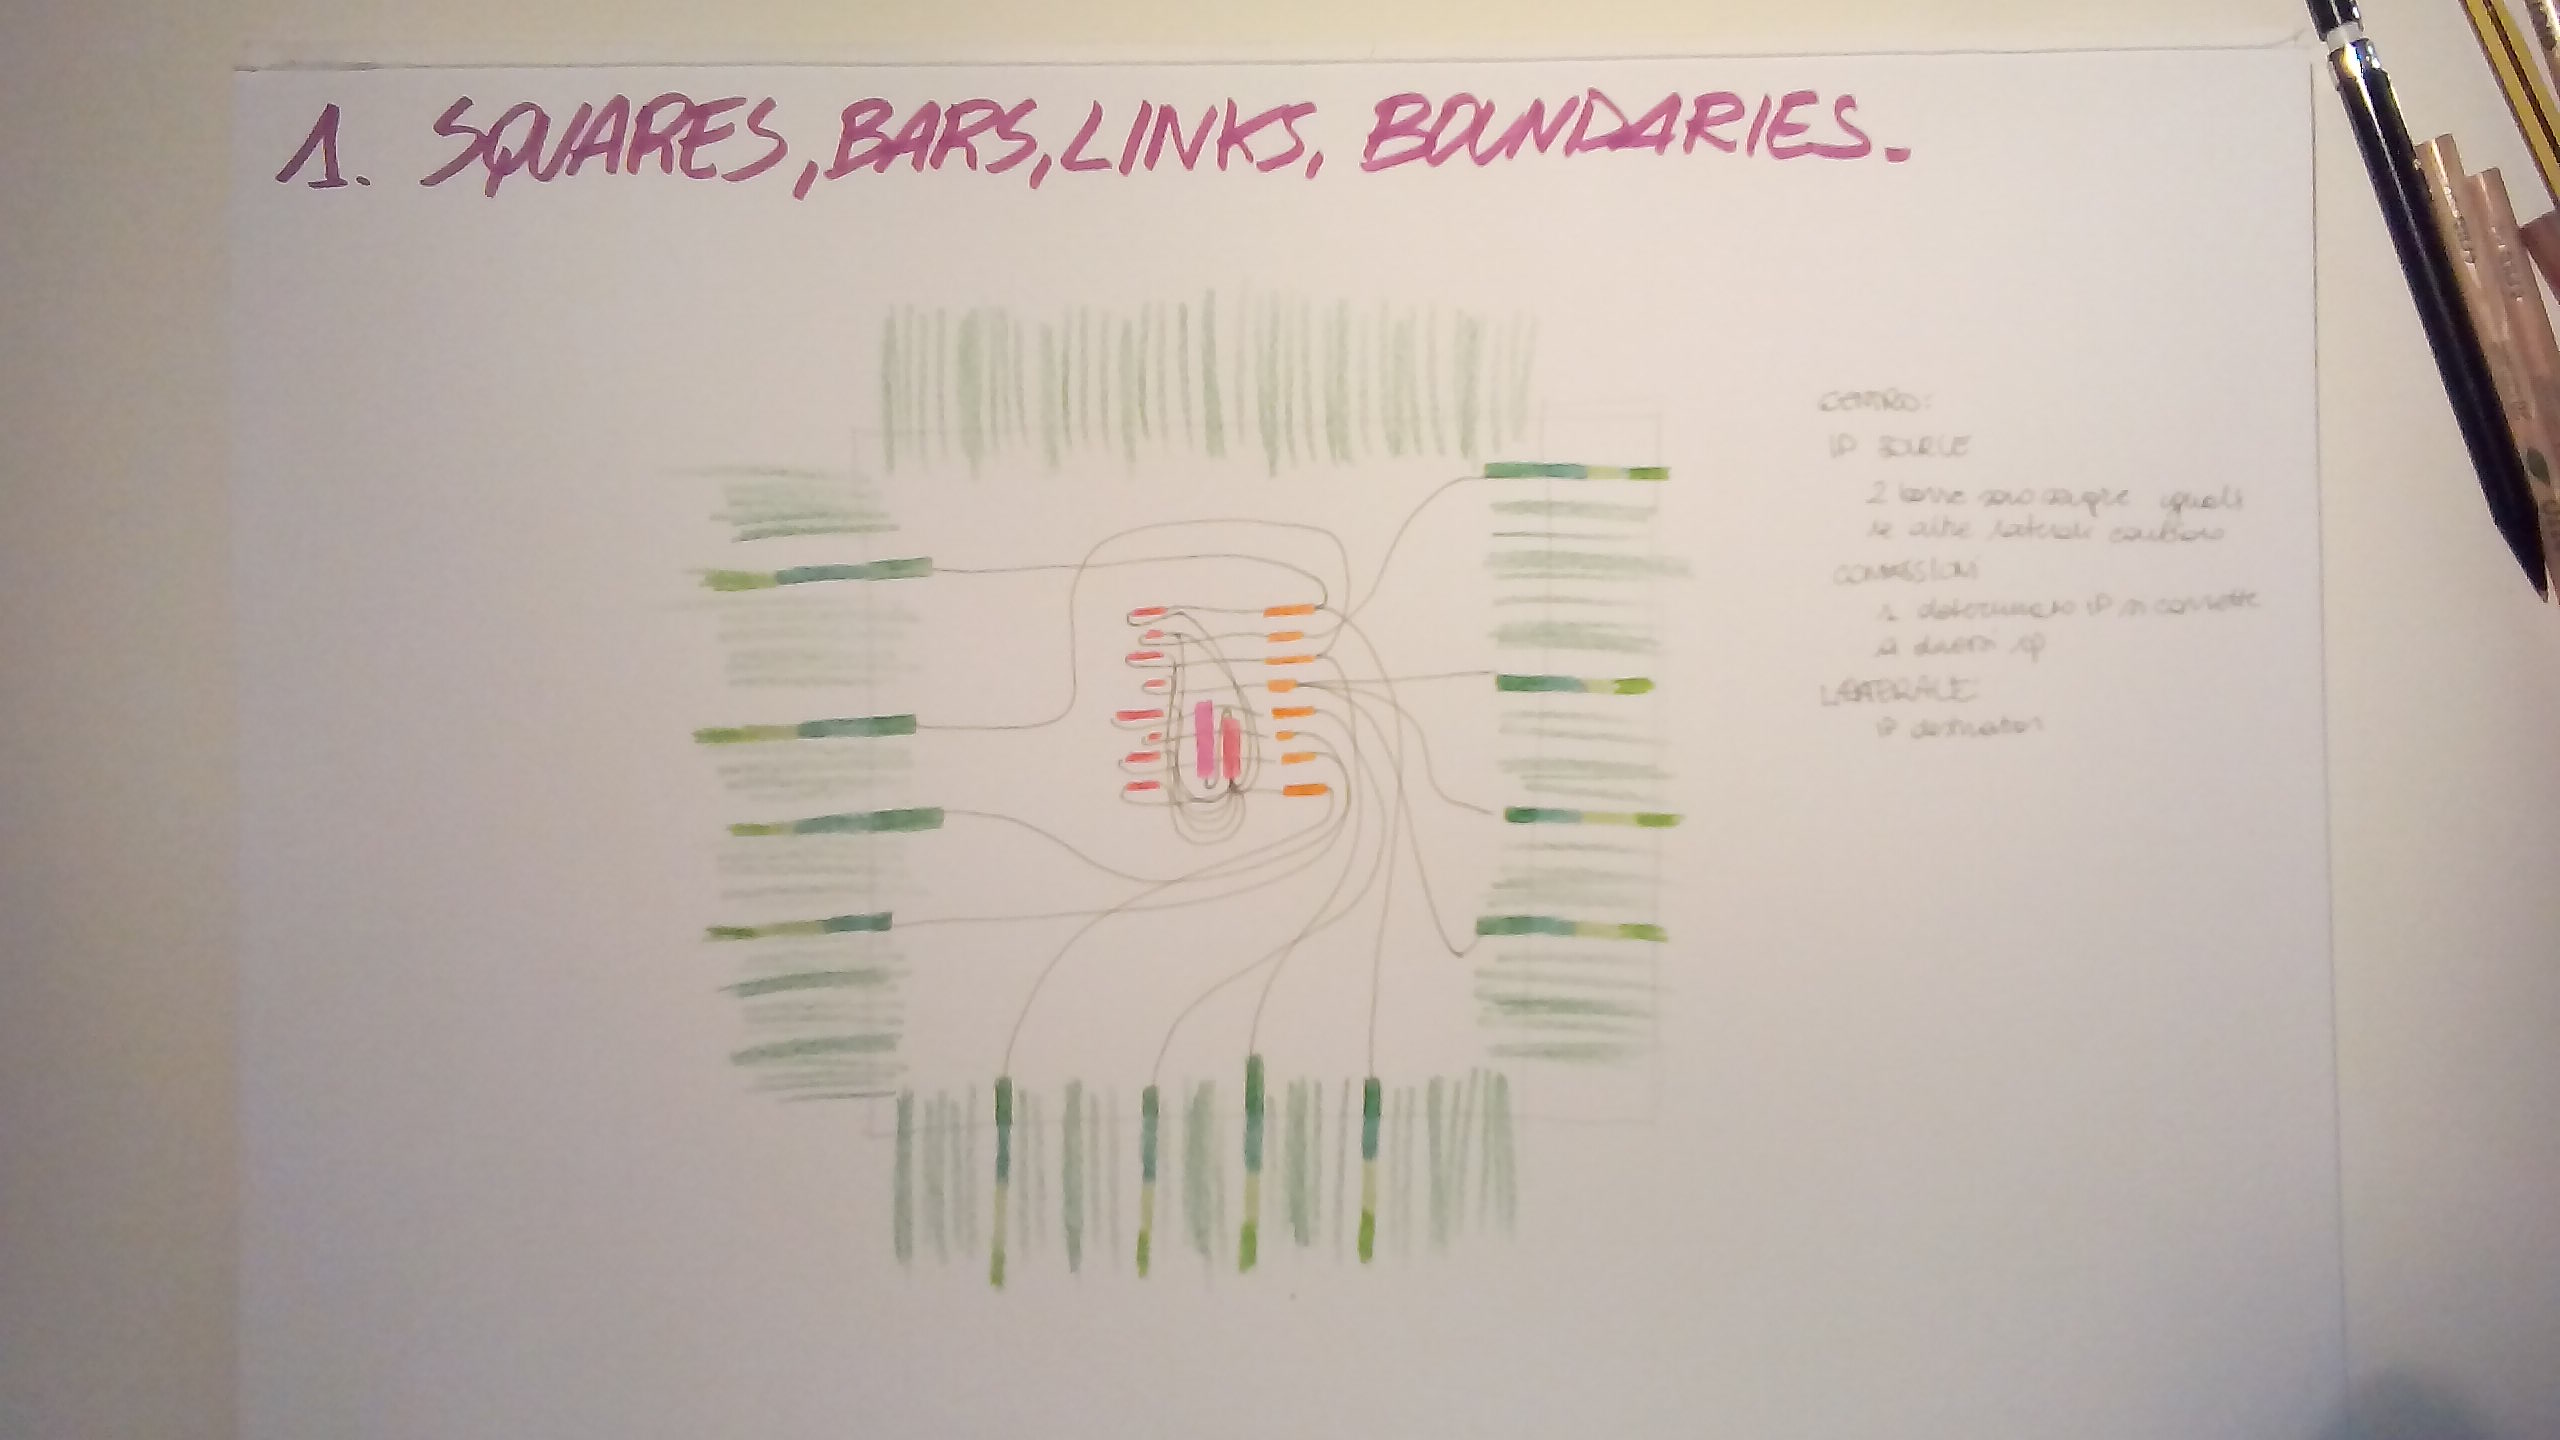 1. SQUARES, BARS, LINKS, BOUNDARIES.
CENTRO:
IP SOURCE
2 barre sono sempre uguali
le altre laterali cambiano
CONNESSIONI
1 determinato IP si connette
a diversi ip
LATERALE:
IP destination